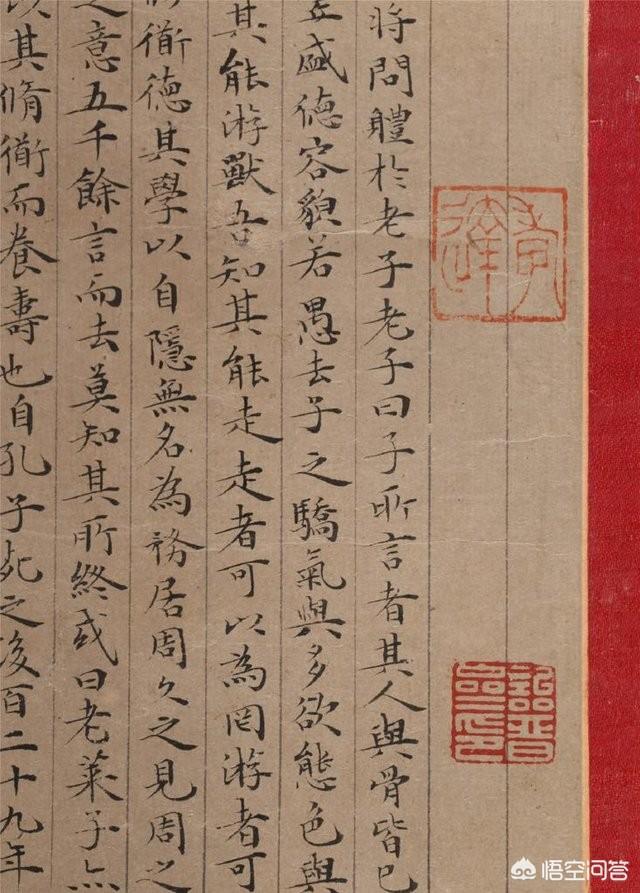 將問體於老子老子曰子所言者其人與骨皆已
盛德容貌若愚去子之驕氣與多欲態色與
其能游獸吾知其能走走者可以為罔游者可
衟德其學以自隱無名為務居周久之見周之
之意五千餘言而去莫知其所終或曰老萊子亦
以其脩衟而養壽也自孔子死之後百二十九年
悟空问答